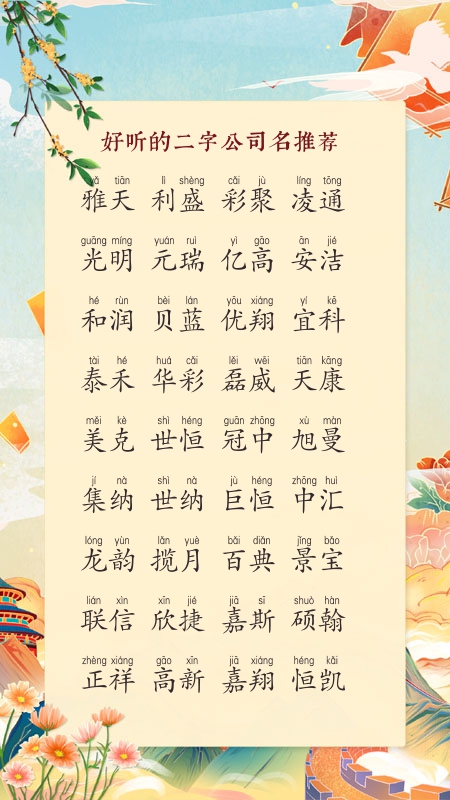 好听的二字公司名推荐
yǎ tiān lì shèng cǎi jù líng tōng
雅天 利盛 彩聚 凌通
guāng míng yuán ruì yì gāo ān jié
光明 元瑞 亿高 安洁
hé rùn bèi lán yōu xiáng yí kē
和润 贝蓝 优翔 宜科
tài hé huá cǎi lěi wēi tiān kāng
泰禾 华彩 磊威 天康
měi kè shì héng guān zhōng xù màn
美克 世恒 冠中 旭曼
jí nà shì nà jù héng zhōng huì
集纳 世纳 巨恒 中汇
lóng yùn lǎn yuè bǎi diǎn jǐng bǎo
龙韵 揽月 百典 景宝
lián xìn xīn jié jiā sī shuò hàn
联信 欣捷 嘉斯 硕翰
zhèng xiáng gāo xīn jiā xiáng héng kǎi
正祥 高新 嘉翔 恒凯